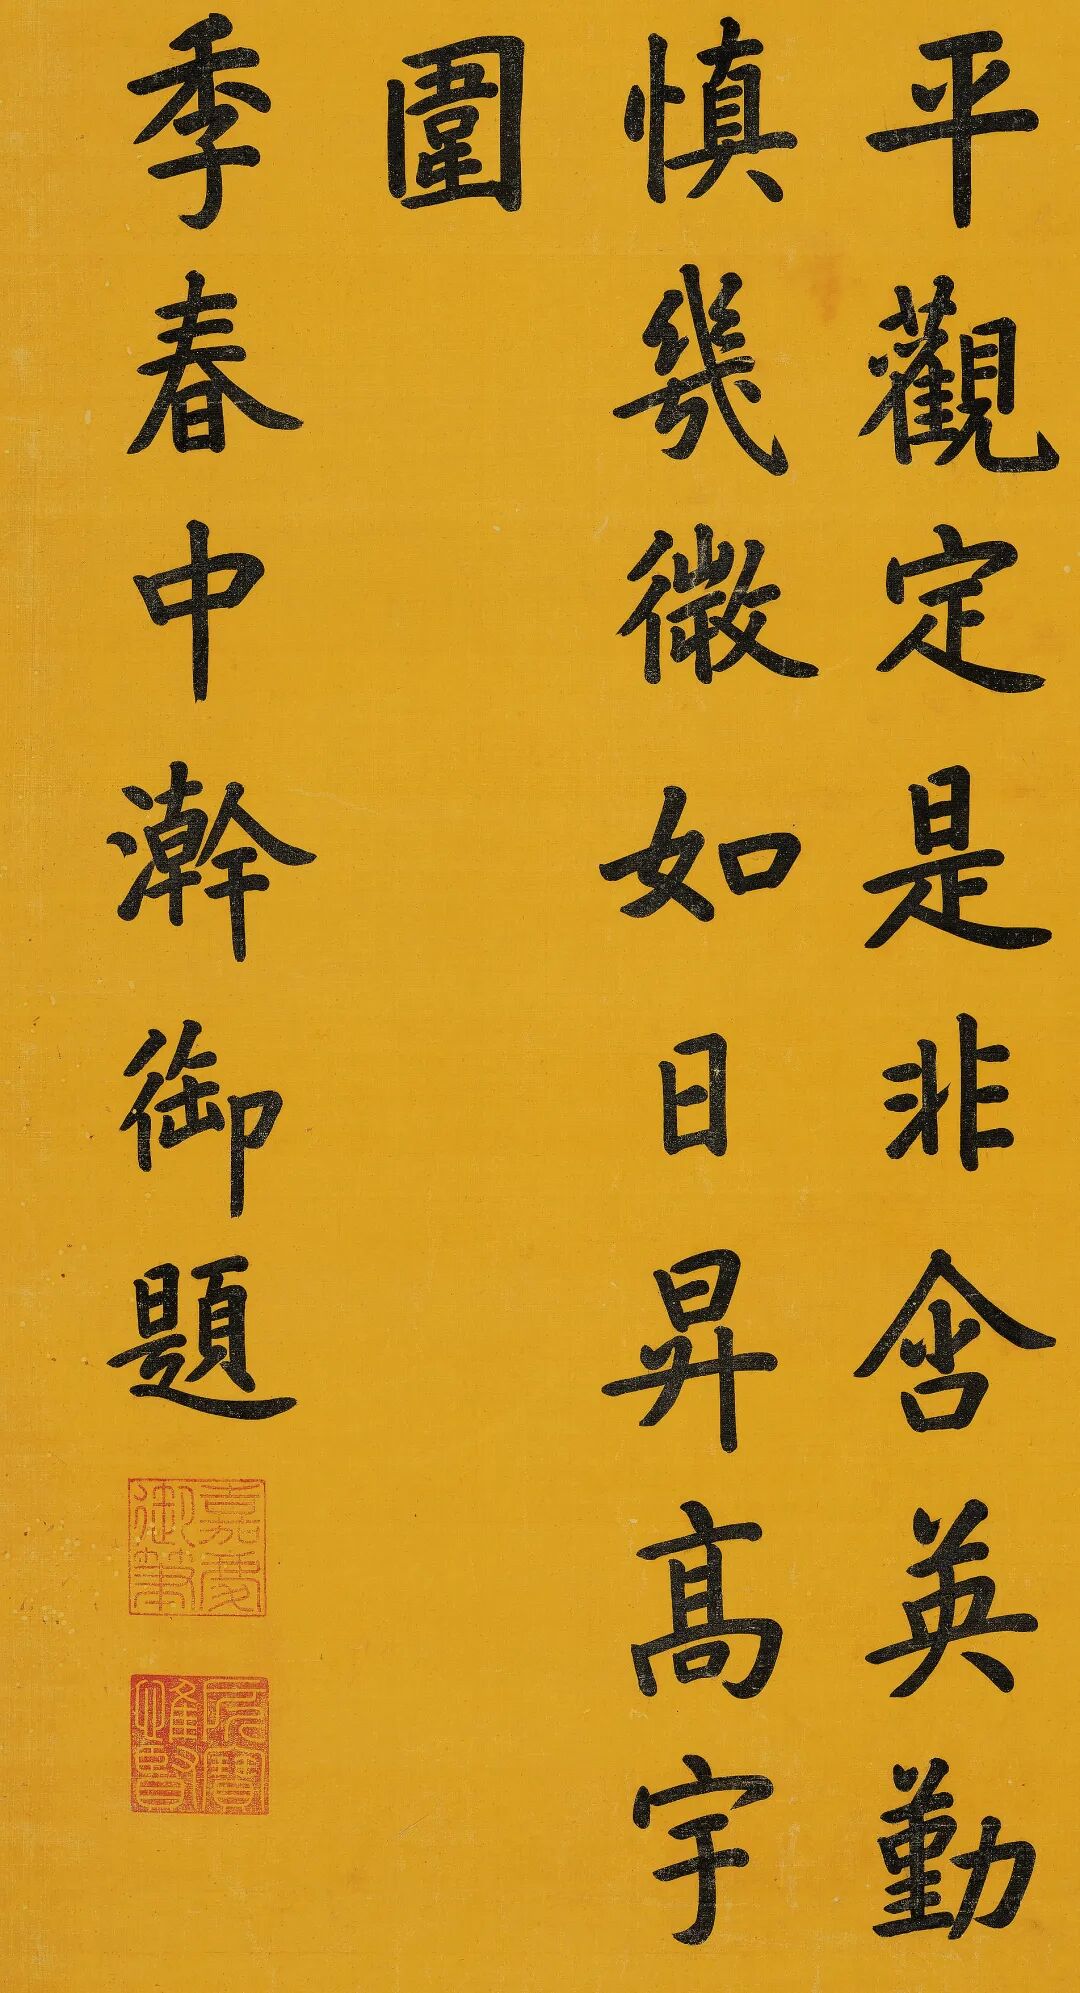 平觀定是非含英勤
慎幾微如日昇高宇
圍
季春中澣御題
嘉慶御筆
所寶惟賢